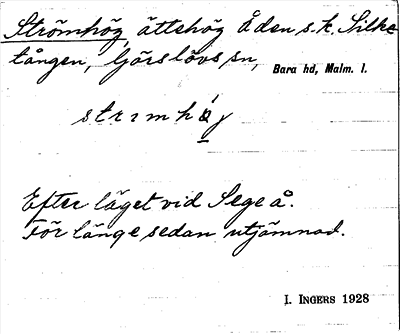 Strömhög, ättehög å den s.k. Silke-
tången, Görslövs sn, Bara hd, Malm. l.
Efter läget vid Sege å.
För länge sedan utjämnad.
I. INGERS 1928